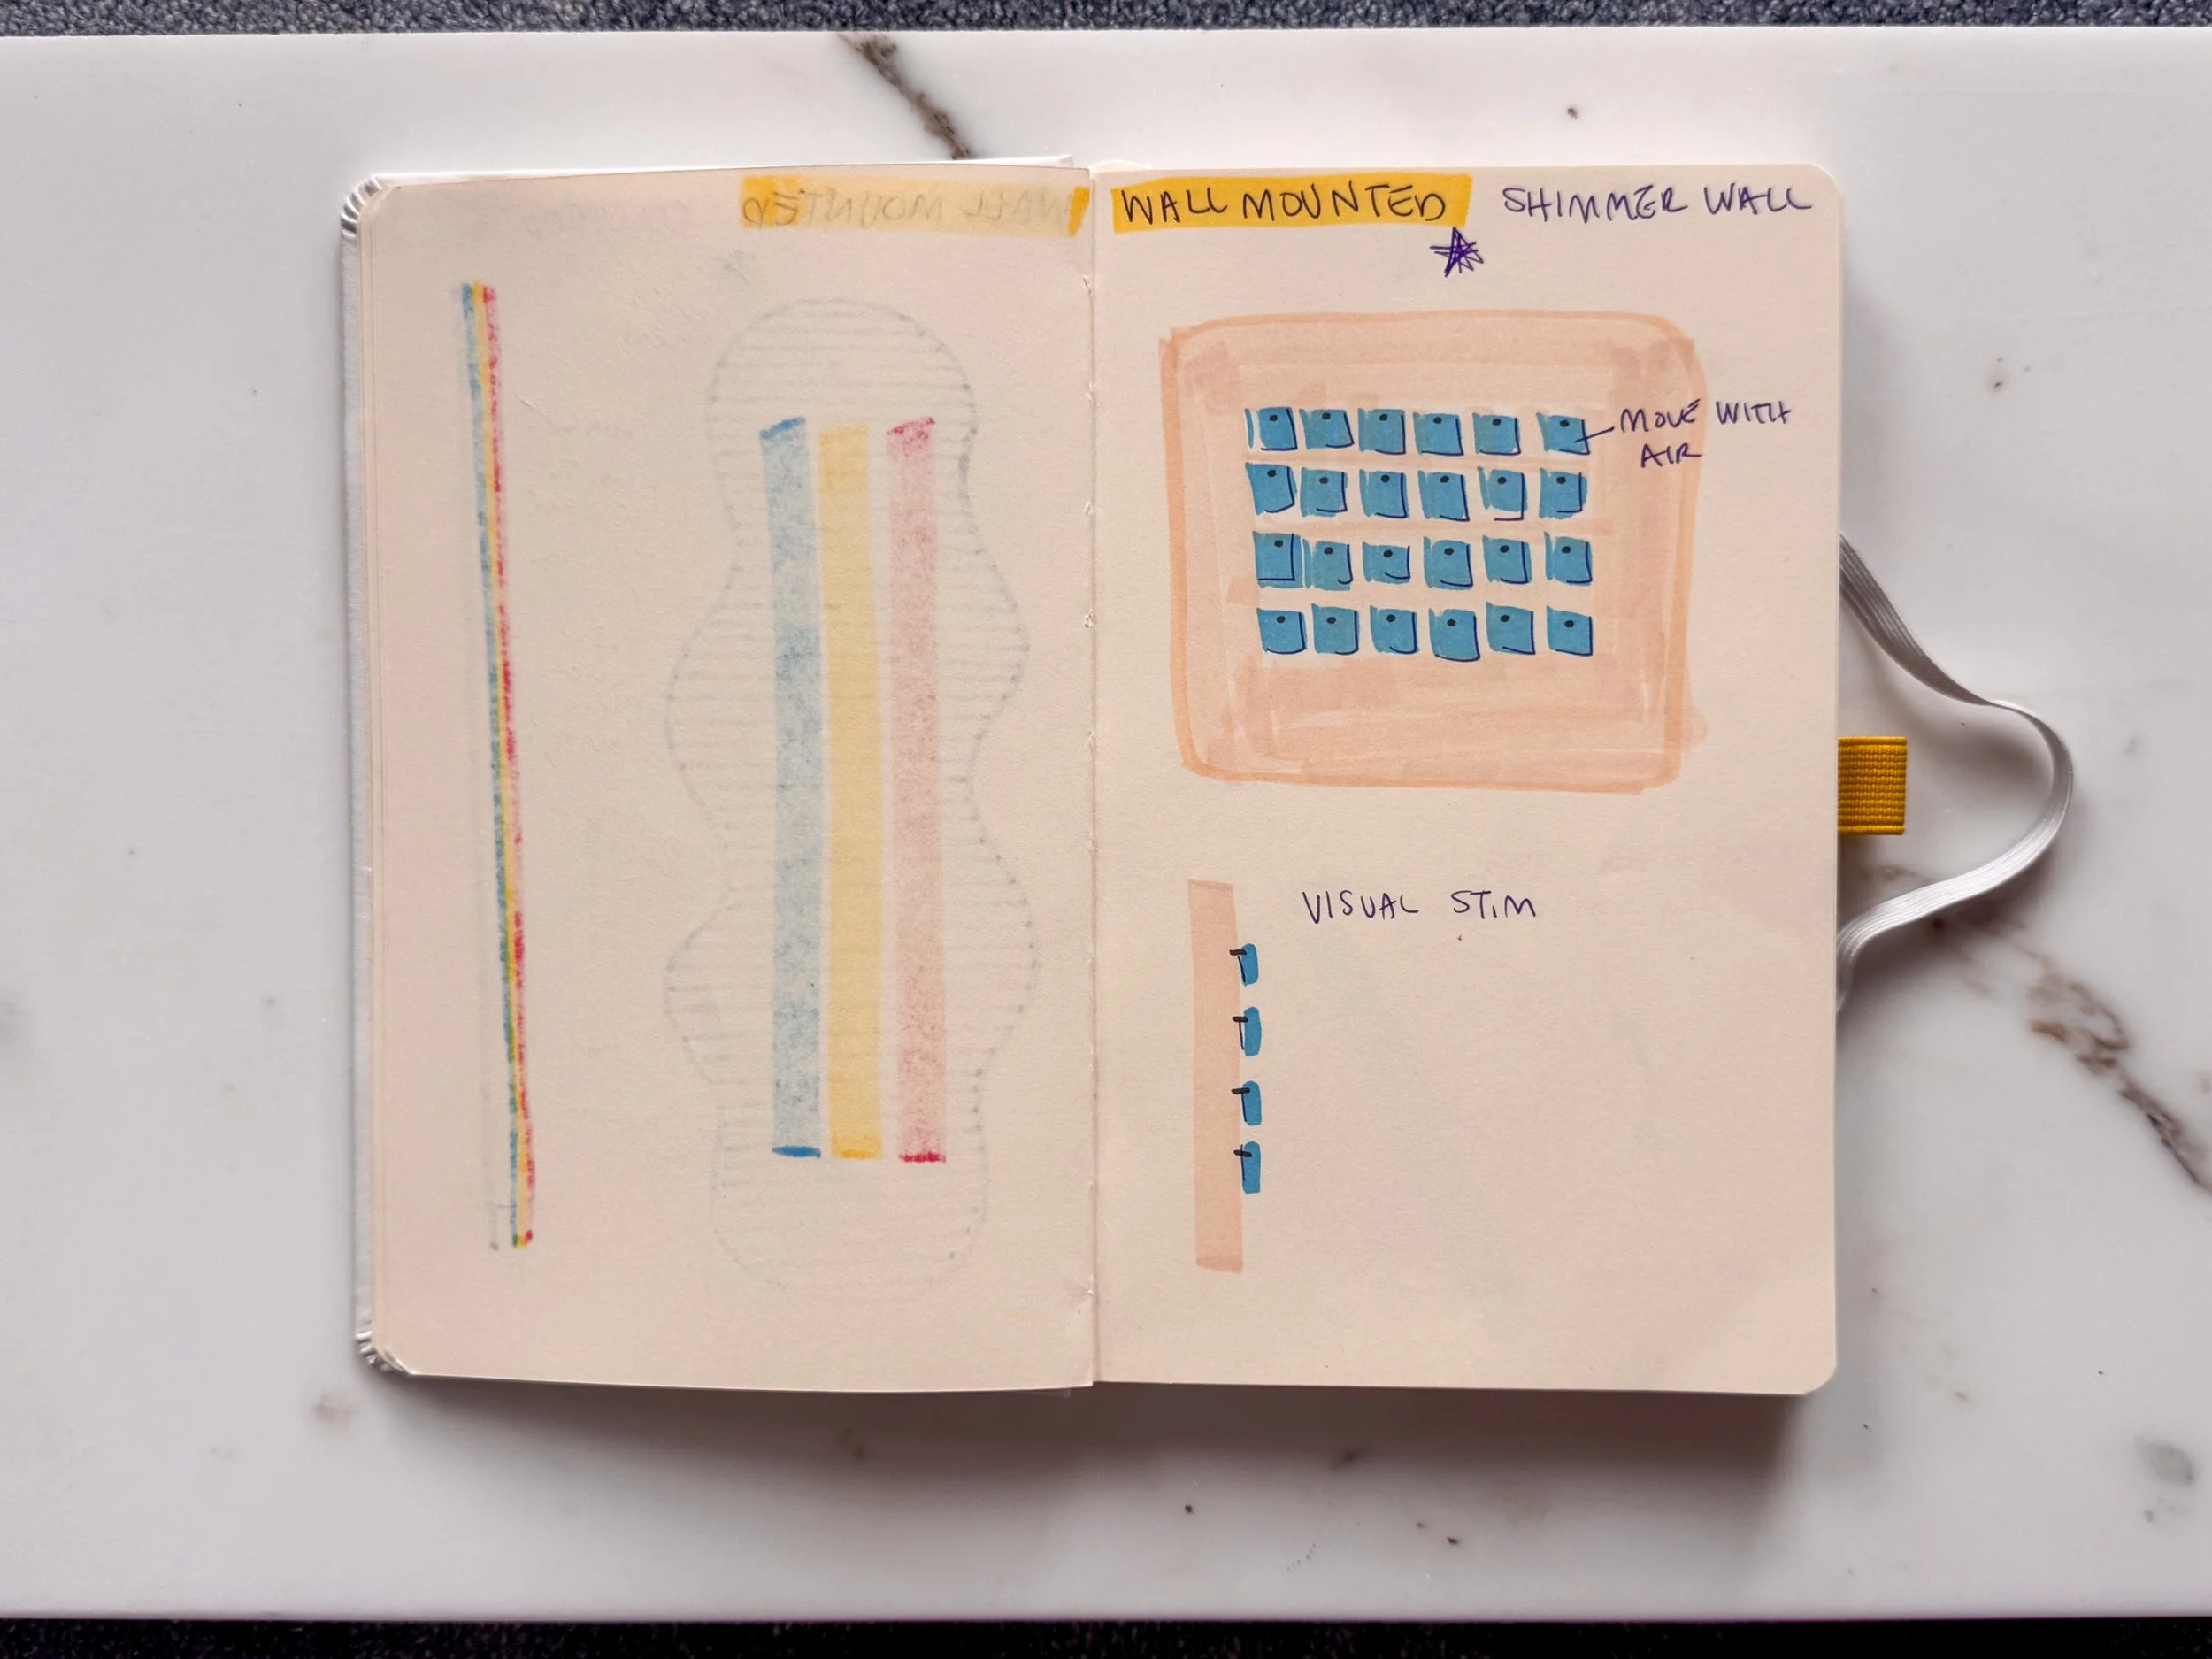 WALL MOUNTED SHIMMER WALL
MOVE WITH
AIR
VISUAL STIM